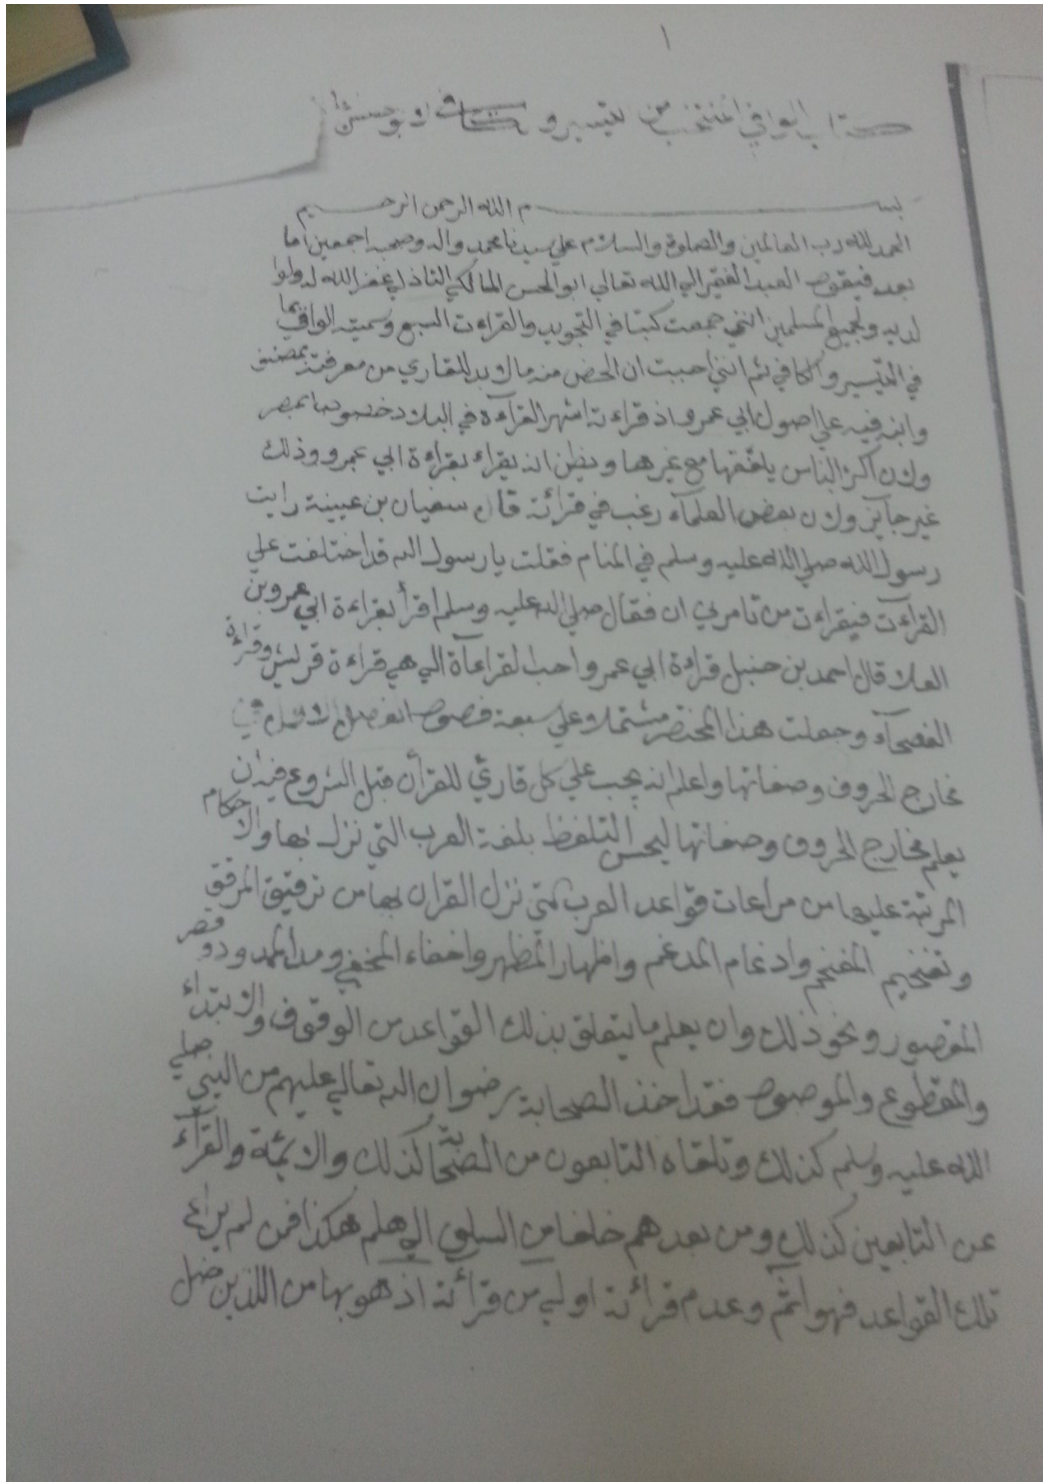 ١
كتاب الوافي المنتخب من تيسير و كافي لابو حسن
بســـم الله الرحمن الرحيم
الحمد لله رب العالمين والصلوة والسلام علي سيدنا محمد واله وصحبه اجمعين اما
بعد فيقول العبد الفقير الي الله تعالي ابو الحسن المالكي الشاذلي غفر الله له ولوا
لديه ولجميع المسلمين انني جمعت كتبا في التجويد والقراءت السبع وسميته الوافي بما
في التيسير والكافي ثم انني احببت ان الخص منه ما لا بد للقاري من معرفته
وابنه فيه علي اصول ابي عمرو اذ قراءته اشهر القرآءة في البلاد خصوصا بمصر
ولان اكثر الناس يلفقها مع غيرها ويظن انه يقراء بقراءة ابي عمرو وذلك
غير جايز ولان بعض العلمآء رغب في قرائته قال سفيان بن عيينة رايت
رسول الله صلي الله عليه وسلم في المنام فقلت يا رسول الله قد اختلفت علي
القراءت فبقراءت من تامرني ان فقال صلي الله عليه وسلم اقرأ بقراءة ابي عمرو بن
العلا قال احمد بن حنبل قراءة ابي عمرو احب القراءآة الي هي قراءة قريش وقراءة
الفصحآء وجعلت هذا المختصر مشتملا علي سبعة فصول الفصل الاول في
مخارج الحروف وصفاتها واعلم انه يجب علي كل قارئ للقرأن قبل الشروع فيه ان
يعلم مخارج الحروف وصفاتها ليحسن التلفظ بلغة العرب التي نزل بها والاحكام
المرتبة عليها من مراعات قواعد العرب التي نزل القران بها من ترقيق المرقق
وتفخيم المفخم وادغام المدغم واظهار المظهر واخفاء المخفي ومد الممدود وقصر
المقصور ونحو ذلك وان يعلم ما يتعلق بذلك القواعد من الوقوف والابتداء
والمقطوع والموصول فقد اخذ الصحابة رضوان الله تعالي عليهم من النبي صلي
الله عليه وسلم كذلك وتلقاه التابعون من الصحابة كذلك والائمة والقرآء
عن التابعين كذلك ومن بعدهم خلفا من السلف الي هلم هكذا فمن لم يراع
تلك القواعد فهو اثم وعدم قرائته اولي من قرائته اذ هو بها من اللذين ضل